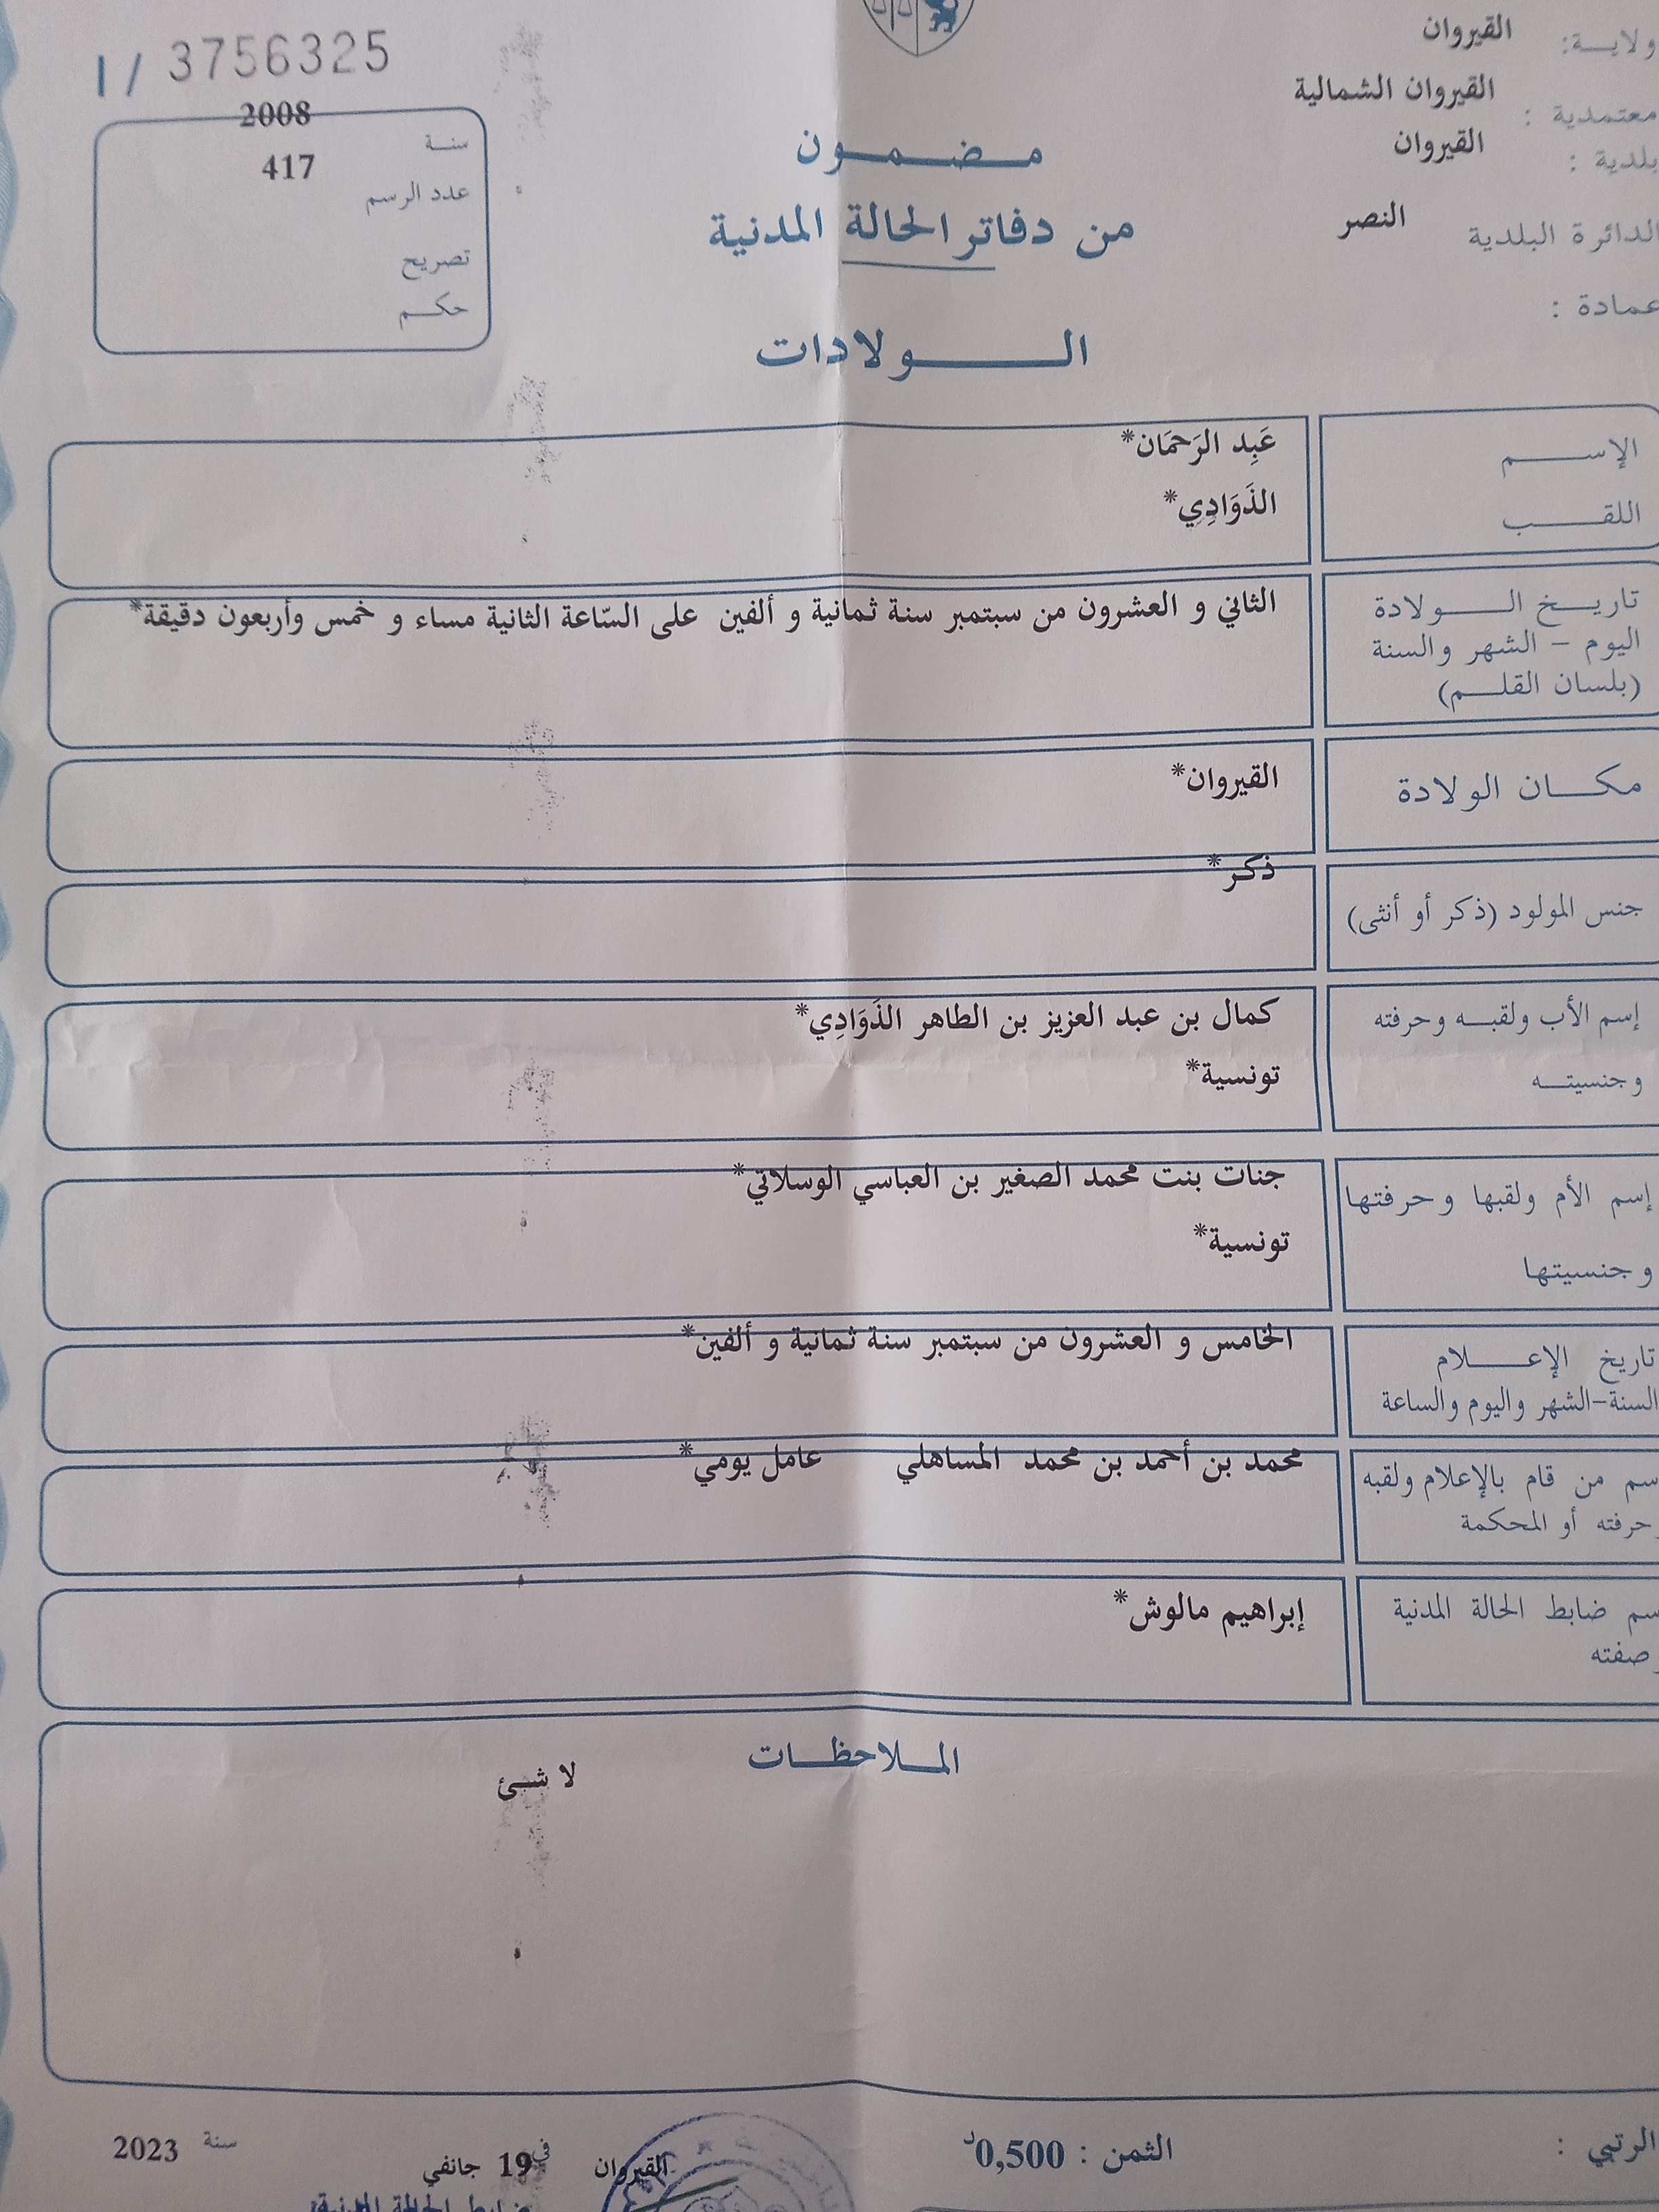 ولاية: القيروان
معتمدية : القيروان الشمالية
بلدية : القيروان
الدائرة البلدية النصر
عمادة :
I / 3756325
سنة 2008
عدد الرسم 417
تصريح
حكم
مضمون
من دفاتر الحالة المدنية
الولادات
الإسم عَبِد الرَحمَان*
اللقب الذَوَادِي*
تاريخ الولادة الثاني و العشرون من سبتمبر سنة ثمانية و ألفين على السّاعة الثانية مساء و خمس وأربعون دقيقة*
اليوم – الشهر والسنة
(بلسان القلم)
مكان الولادة القيروان*
جنس المولود (ذكر أو أنثى) ذكر*
إسم الأب ولقبه وحرفته كمال بن عبد العزيز بن الطاهر الذَوَادِي*
وجنسيته تونسية*
إسم الأم ولقبها وحرفتها جنات بنت محمد الصغير بن العباسي الوسلاتي*
وجنسيتها تونسية*
تاريخ الإعلام الخامس و العشرون من سبتمبر سنة ثمانية و ألفين*
السنة-الشهر واليوم والساعة
سم من قام بالإعلام ولقبه محمد بن أحمد بن محمد المساهلي عامل يومي*
حرفته أو المحكمة
سم ضابط الحالة المدنية إبراهيم مالوش*
صفته
الملاحظات
لا شئ
الرتبي :
الثمن : 0,500د
القيروان في 19 جانفي سنة 2023
ضابط الحالة المدنية